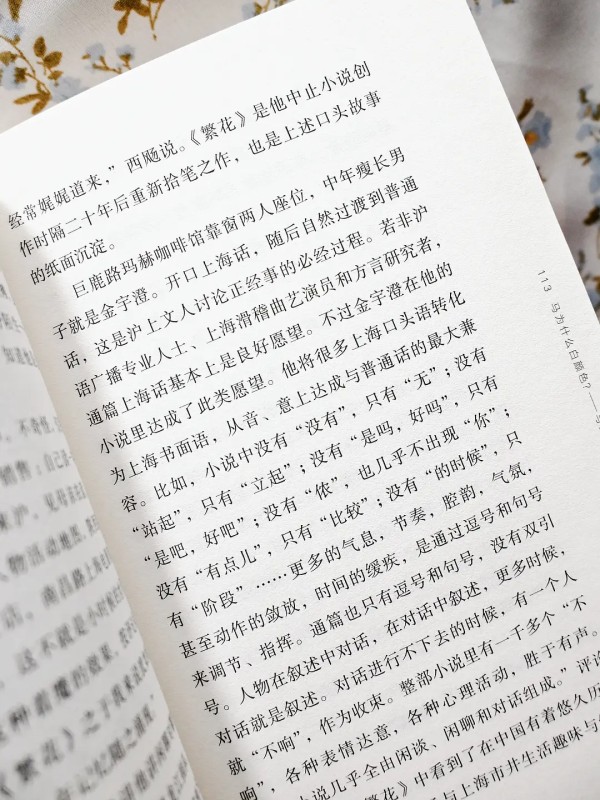 经常娓娓道来，”西飏说。《繁花》是他中止小说创
作时隔二十年后重新拾笔之作，也是上述口头故事
的纸面沉淀。
巨鹿路玛赫咖啡馆靠窗两人座位，中年瘦长男
子就是金宇澄。开口上海话，随后自然过渡到普通
话，这是沪上文人讨论正经事的必经过程。若非沪
语广播专业人士、上海滑稽曲艺演员和方言研究者，
通篇上海话基本上是良好愿望。不过金宇澄在他的
小说里达成了此类愿望。他将很多上海口头语转化
为上海书面语，从音、意上达成与普通话的最大兼
容。比如，小说中没有“没有”，只有“无”；没有
“站起”，只有“立起”；没有“是吗，好吗”，只有
“是吧，好吧”；没有“侬”，也几乎不出现“你”；
没有“有点儿”，只有“比较”；没有“的时候”，只
有“阶段”……更多的气息，节奏，腔韵，气氛，
甚至动作的敛放，时间的缓疾，是通过逗号和句号
来调节、指挥。通篇也只有逗号和句号，没有双引
号。人物在叙述中对话，在对话中叙述，更多时候，
对话就是叙述。对话进行不下去的时候，有一个人
就“不响”，作为收束。整部小说里有一千多个“不
响”，各种表情达意，各种心理活动，胜于有声。
小说几乎全由闲谈、闲聊和对话组成。”评论
繁花》中看到了在中国有着悠久历
与上海市井生活趣味与
113 马为什么白颜色？——